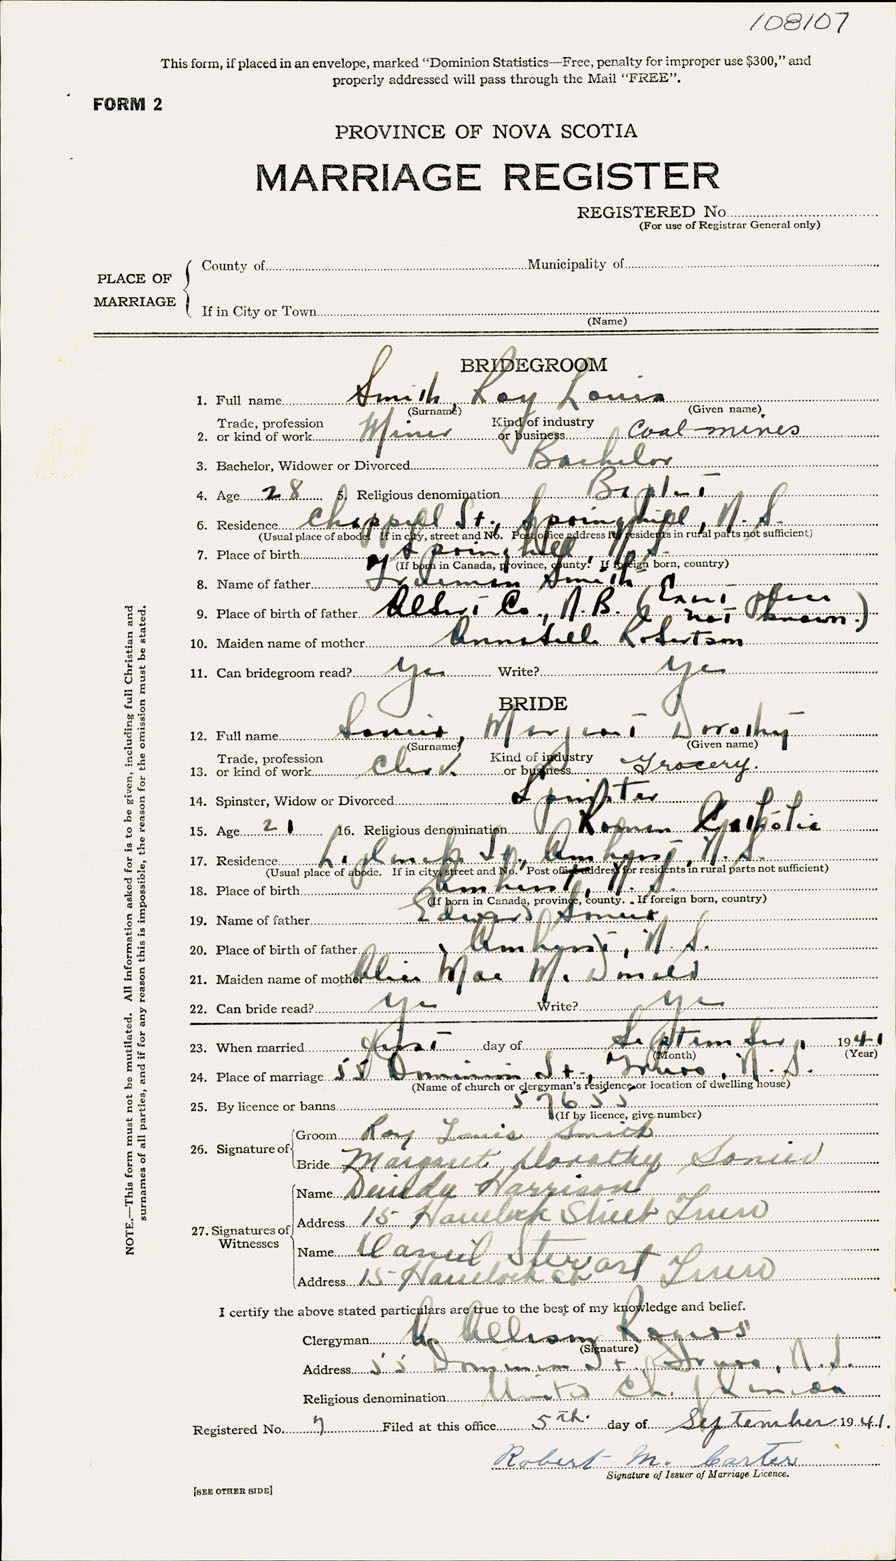 108107
This form, if placed in an envelope, marked "Dominion Statistics—Free, penalty for improper use $300," and
properly addressed will pass through the Mail "FREE".
FORM 2
PROVINCE OF NOVA SCOTIA
MARRIAGE REGISTER
REGISTERED No.
(For use of Registrar General only)
PLACE OF MARRIAGE
County of Municipality of
If in City or Town
(Name)
BRIDEGROOM
1. Full name Smith, Roy Louis
(Surname) (Given name)
2. Trade, profession or kind of work Miner Kind of industry or business Coal-mines
3. Bachelor, Widower or Divorced Bachelor
4. Age 28 5. Religious denomination Baptist
6. Residence Chappell St., Springhill, N. S.
(Usual place of abode. If in city, street and No. Post office address for residents in rural parts not sufficient)
7. Place of birth Springhill, N. S.
(If born in Canada, province, county. If foreign born, country)
8. Name of father Freeman Smith
9. Place of birth of father Albert Co., N.B. (Exact place not known.)
10. Maiden name of mother Annabell Robertson
11. Can bridegroom read? Yes Write? Yes
BRIDE
12. Full name Sonier, Margaret Dorothy
(Surname) (Given name)
13. Trade, profession or kind of work Clerk Kind of industry or business Grocery.
14. Spinster, Widow or Divorced Spinster
15. Age 21 16. Religious denomination Roman Catholic
17. Residence St., Amherst, N. S.
(Usual place of abode. If in city, street and No. Post office address for residents in rural parts not sufficient)
18. Place of birth Amherst, N. S.
(If born in Canada, province, county. If foreign born, country)
19. Name of father Edward Sonier
20. Place of birth of father Amherst, N. S.
21. Maiden name of mother Alice Mae McDonald
22. Can bride read? Yes Write? Yes
23. When married first day of September, 1941
(Month) (Year)
24. Place of marriage 55 Dominion St., Truro, N. S.
(Name of church or clergyman's residence or location of dwelling house)
25. By licence or banns 57655
(If by licence, give number)
26. Signature of
Groom Roy Louis Smith
Bride Margaret Dorothy Sonier
27. Signatures of Witnesses
Name Harrison
Address 15 Havelock Street Truro
Name Daniel Stewart
Address 15 Havelock St Truro
I certify the above stated particulars are true to the best of my knowledge and belief.
Clergyman Allison Rogers
(Signature)
Address 55 Dominion St., Truro, N.S.
Religious denomination United Ch. of Canada
Registered No. 7 Filed at this office 5th. day of September 1941.
Robert M. Carter
Signature of Issuer of Marriage Licence.
[SEE OTHER SIDE]
NOTE.—This form must not be mutilated. All information asked for is to be given, including full Christian and
surnames of all parties, and if for any reason this is impossible, the reason for the omission must be stated.